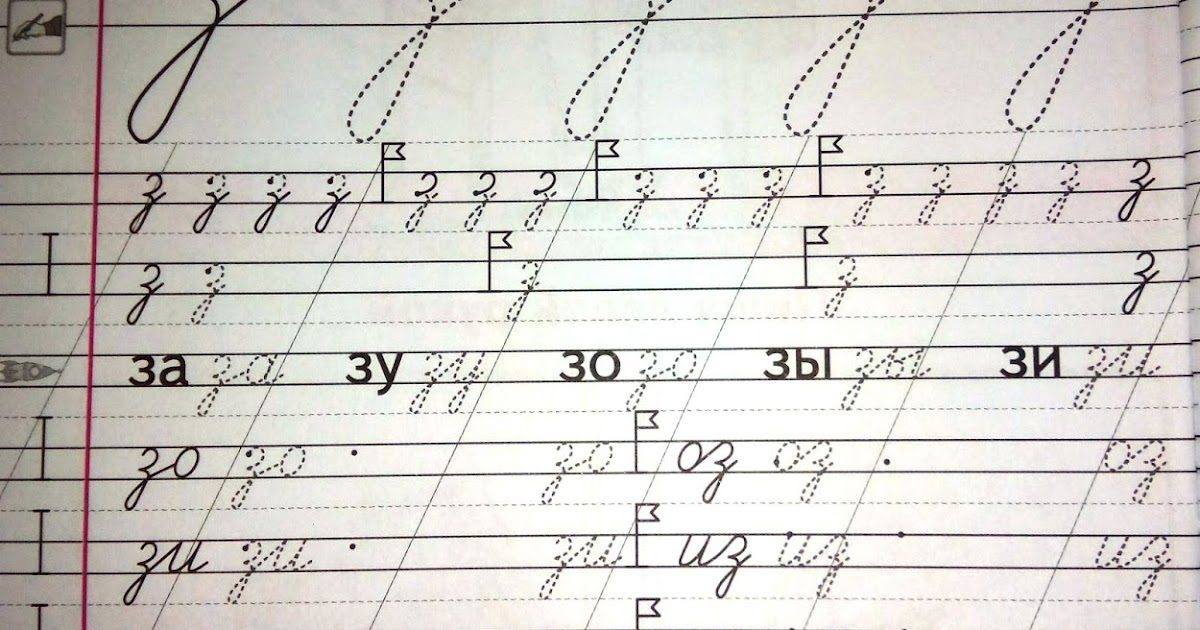 з з з з з з з з з з з з з з з
з з з з з
за за зу зу зо зо зы зы зи зи
зо зо зо оз оз оз
зи зи зи из из из